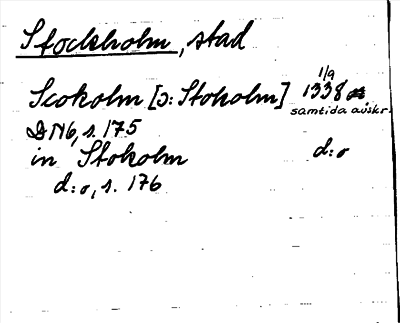 Stockholm, stad
Scokolm [ɔ: Stokolm] 1/9 1338
samtida avskr.
DN6, s. 175
in Stokolm d:o
d:o, s. 176